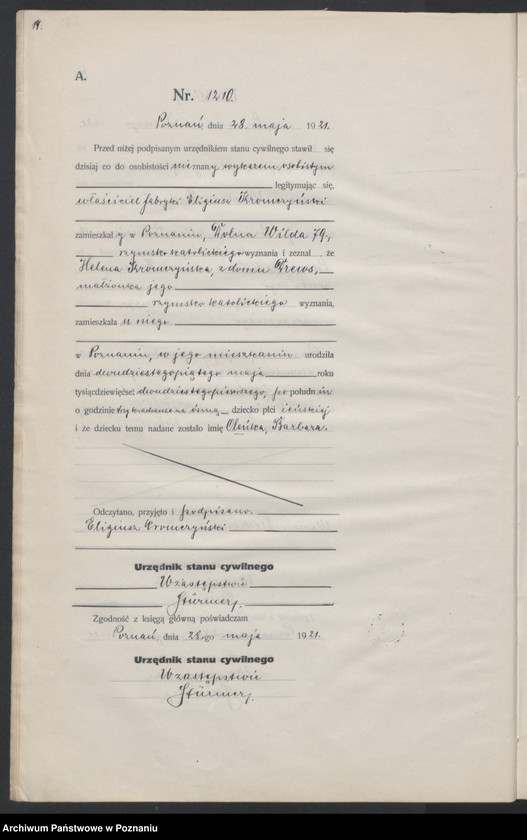 14.
A.
Nr. 1210.
Poznań, dnia 28. maja 1921.
Przed niżej podpisanym urzędnikiem stanu cywilnego stawił się
dzisiaj co do osobistości nieznany wykazem osobistym
legitymując się,
właściciel fabryki Eligiusz Kromczyński
zamieszkały w Poznaniu, Dolna Wilda 79.,
rzymsko katolickiego wyznania i zeznał, że
Helena Kromczyńska, z domu Drews,
małżonka jego
rzymsko katolickiego wyznania,
zamieszkała u niego
w Poznaniu, w jego mieszkaniu urodziła
dnia dwudziestegopiątego maja roku
tysiącdziewięćset dwudziestegopierwszego, po południu
o godzinie trzy kwadranse na ósmą dziecko płci żeńskiej
i że dziecku temu nadane zostało imię Oleńka, Barbara.
Odczytano, przyjęto i podpisano
Eligiusz Kromczyński
Urzędnik stanu cywilnego
W zastępstwie
Stürmer.
Zgodność z księgą główną poświadczam
Poznań, dnia 28-go maja 1921.
Urzędnik stanu cywilnego
W zastępstwie
Stürmer.
Archiwum Państwowe w Poznaniu